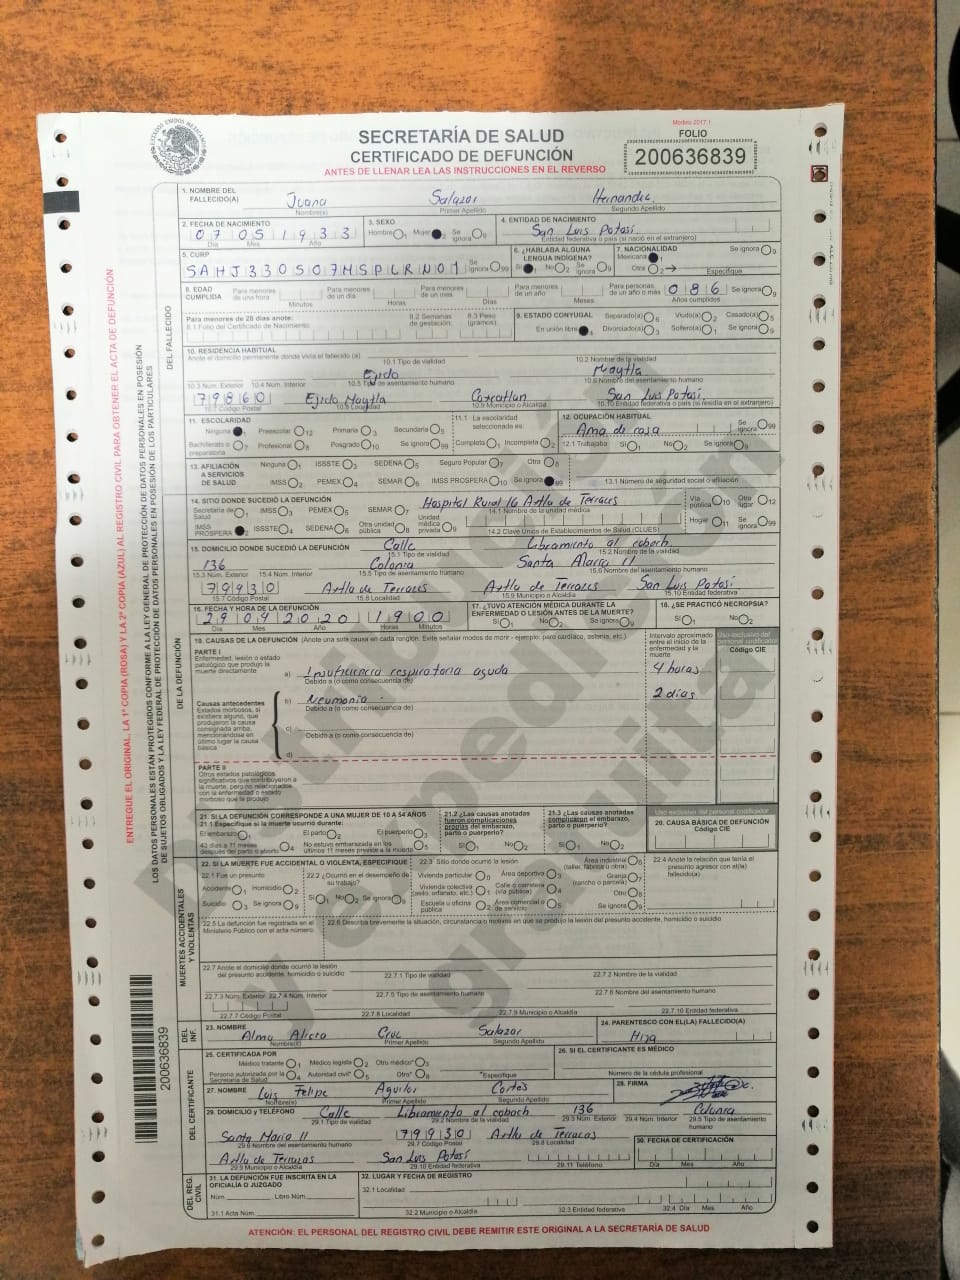 Modelo 2017.1
SECRETARÍA DE SALUD
CERTIFICADO DE DEFUNCIÓN
ANTES DE LLENAR LEA LAS INSTRUCCIONES EN EL REVERSO
FOLIO
200636839
ENTREGUE EL ORIGINAL, LA 1ª COPIA (ROSA) Y LA 2ª COPIA (AZUL) AL REGISTRO CIVIL PARA OBTENER EL ACTA DE DEFUNCIÓN
LOS DATOS PERSONALES ESTÁN PROTEGIDOS CONFORME A LA LEY GENERAL DE PROTECCIÓN DE DATOS PERSONALES EN POSESIÓN
DE SUJETOS OBLIGADOS Y LA LEY FEDERAL DE PROTECCIÓN DE DATOS PERSONALES EN POSESIÓN DE LOS PARTICULARES
DEL FALLECIDO
1. NOMBRE DEL FALLECIDO(A) Juana Salazar Hernandez
Nombre(s) Primer Apellido Segundo Apellido
2. FECHA DE NACIMIENTO 3. SEXO 4. ENTIDAD DE NACIMIENTO
07 05 1933 Hombre 1 Mujer 2 Se ignora 9 San Luis Potosí
Día Mes Año Entidad federativa o país (si nació en el extranjero)
5. CURP 6. ¿HABLABA ALGUNA LENGUA INDÍGENA? 7. NACIONALIDAD Se ignora 9
SAHJ330507MSPLRN01 Se ignora 99 Sí 1 No 2 Se ignora 9 Mexicana 1 Otra 2 Especifique
8. EDAD CUMPLIDA Para menores de una hora Para menores de un día Para menores de un mes Para menores de un año Para personas de un año o más 086 Se ignora 9
Minutos Horas Días Meses Años cumplidos
Para menores de 28 días anote: 8.2 Semanas de gestación: 8.3 Peso (gramos): 9. ESTADO CONYUGAL Separado(a) 6 Viudo(a) 2 Casado(a) 5
8.1 Folio del Certificado de Nacimiento En unión libre 4 Divorciado(a) 3 Soltero(a) 1 Se ignora 9
10. RESIDENCIA HABITUAL
Anote el domicilio permanente donde vivía el fallecido (a) 10.1 Tipo de vialidad 10.2 Nombre de la vialidad
Ejido Maytla
10.3 Núm. Exterior 10.4 Núm. Interior 10.5 Tipo de asentamiento humano 10.6 Nombre del asentamiento humano
79860 Ejido Maytla Coxcatlan San Luis Potosí
10.7 Código Postal 10.8 Localidad 10.9 Municipio o Alcaldía 10.10 Entidad federativa o país (si residía en el extranjero)
11. ESCOLARIDAD 11.1 La escolaridad seleccionada es: 12. OCUPACIÓN HABITUAL
Ninguna 1 Preescolar 12 Primaria 3 Secundaria 5 Ama de casa Se ignora 99
Bachillerato o preparatoria 7 Profesional 8 Posgrado 10 Se ignora 99 Completa 1 Incompleta 2 12.1 Trabajaba Sí 1 No 2 Se ignora 9
13. AFILIACIÓN A SERVICIOS DE SALUD Ninguna 1 ISSSTE 3 SEDENA 5 Seguro Popular 7 Otra 8
IMSS 2 PEMEX 4 SEMAR 6 IMSS PROSPERA 10 Se ignora 99 13.1 Número de seguridad social o afiliación
DE LA DEFUNCIÓN
14. SITIO DONDE SUCEDIÓ LA DEFUNCIÓN Hospital Rural 16 Axtla de Terrazas Vía pública 10 Otro lugar 12
Secretaría de Salud 1 IMSS 3 PEMEX 5 SEMAR 7 14.1 Nombre de la unidad médica
IMSS PROSPERA 2 ISSSTE 4 SEDENA 6 Otra unidad pública 8 Unidad médica privada 9 14.2 Clave Única de Establecimientos de Salud (CLUES) Hogar 11 Se ignora 99
15. DOMICILIO DONDE SUCEDIÓ LA DEFUNCIÓN Calle Libramiento al cobach
15.1 Tipo de vialidad 15.2 Nombre de la vialidad
136 Colonia Santa Maria II
15.3 Núm. Exterior 15.4 Núm. Interior 15.5 Tipo de asentamiento humano 15.6 Nombre del asentamiento humano
79930 Axtla de Terrazas Axtla de Terrazas San Luis Potosí
15.7 Código Postal 15.8 Localidad 15.9 Municipio o Alcaldía 15.10 Entidad federativa
16. FECHA Y HORA DE LA DEFUNCIÓN 17. ¿TUVO ATENCIÓN MÉDICA DURANTE LA ENFERMEDAD O LESIÓN ANTES DE LA MUERTE? 18. ¿SE PRACTICÓ NECROPSIA?
29 04 2020 1900 Sí 1 No 2 Se ignora 9 Sí 1 No 2
Día Mes Año Horas Minutos
19. CAUSAS DE LA DEFUNCIÓN (Anote una sola causa en cada renglón. Evite señalar modos de morir - ejemplo: paro cardiaco, astenia, etc.)
Intervalo aproximado entre el inicio de la enfermedad y la muerte
Uso exclusivo del personal certificador
Código CIE
PARTE I
Enfermedad, lesión o estado patológico que produjo la muerte directamente
a) Insuficiencia respiratoria aguda 4 horas
Debido a (o como consecuencia de)
Causas antecedentes
Estados morbosos, si existiera alguno, que produjeron la causa consignada arriba, mencionándose en último lugar la causa básica
b) Neumonia 2 días
Debido a (o como consecuencia de)
c)
Debido a (o como consecuencia de)
d)
PARTE II
Otros estados patológicos significativos que contribuyeron a la muerte, pero no relacionados con la enfermedad o estado morboso que la produjo
21. SI LA DEFUNCIÓN CORRESPONDE A UNA MUJER DE 10 A 54 AÑOS
21.1 Especifique si la muerte ocurrió durante:
El embarazo 1 El parto 2 El puerperio 3
43 días a 11 meses después del parto o aborto 4 No estuvo embarazada en los últimos 11 meses previos a la muerte 5
21.2 ¿Las causas anotadas fueron complicaciones propias del embarazo, parto o puerperio? Sí 1 No 2
21.3 ¿Las causas anotadas complicaron el embarazo, parto o puerperio? Sí 1 No 2
20. CAUSA BÁSICA DE DEFUNCIÓN
Código CIE
MUERTES ACCIDENTALES Y VIOLENTAS
22. SI LA MUERTE FUE ACCIDENTAL O VIOLENTA, ESPECIFIQUE
22.1 Fue un presunto
Accidente 1 Homicidio 2
Suicidio 3 Se ignora 9
22.2 ¿Ocurrió en el desempeño de su trabajo?
Sí 1 No 2 Se ignora 9
22.3 Sitio donde ocurrió la lesión
Vivienda particular 0 Área deportiva 3 Área industrial (taller, fábrica u obra) 6
Vivienda colectiva (asilo, orfanato, etc.) 1 Calle o carretera (vía pública) 4 Granja (rancho o parcela) 7
Escuela u oficina pública 2 Área comercial o de servicio 5 Otro 8
Se ignora 9
22.4 Anote la relación que tenía el presunto agresor con el(la) fallecido(a)
22.5 La defunción fue registrada en el Ministerio Público con el acta número:
22.6 Describa brevemente la situación, circunstancia o motivos en que se produjo la lesión del presunto accidente, homicidio o suicidio
22.7 Anote el domicilio donde ocurrió la lesión del presunto accidente, homicidio o suicidio
22.7.1 Tipo de vialidad 22.7.2 Nombre de la vialidad
22.7.3 Núm. Exterior 22.7.4 Núm. Interior 22.7.5 Tipo de asentamiento humano 22.7.6 Nombre del asentamiento humano
22.7.7 Código Postal 22.7.8 Localidad 22.7.9 Municipio o Alcaldía 22.7.10 Entidad federativa
DEL INF.
23. NOMBRE Alma Alicia Cruz Salazar
Nombre(s) Primer Apellido Segundo Apellido
24. PARENTESCO CON EL(LA) FALLECIDO(A) Hija
DEL CERTIFICANTE
25. CERTIFICADA POR
Médico tratante 1 Médico legista 2 Otro médico* 3
Persona autorizada por la Secretaría de Salud 4 Autoridad civil* 5 Otro* 8 *Especifique
26. SI EL CERTIFICANTE ES MÉDICO
Número de la cédula profesional
27. NOMBRE Luis Felipe Aguilar Cortes 28. FIRMA
Nombre(s) Primer Apellido Segundo Apellido
29. DOMICILIO Y TELÉFONO Calle Libramiento al cobach 136 Colonia
29.1 Tipo de vialidad 29.2 Nombre de la vialidad 29.3 Núm. Exterior 29.4 Núm. Interior 29.5 Tipo de asentamiento humano
Santa Maria II 79930 Axtla de Terrazas
29.6 Nombre del asentamiento humano 29.7 Código Postal 29.8 Localidad
30. FECHA DE CERTIFICACIÓN
Axtla de Terrazas San Luis Potosí
29.9 Municipio o Alcaldía 29.10 Entidad federativa 29.11 Teléfono Día Mes Año
DEL REG. CIVIL
31. LA DEFUNCIÓN FUE INSCRITA EN LA OFICIALÍA O JUZGADO
Núm. Libro Núm.
31.1 Acta Núm.
32. LUGAR Y FECHA DE REGISTRO
32.1 Localidad
32.2 Municipio o Alcaldía 32.3 Entidad federativa 32.4 Día Mes Año
200636839
ATENCIÓN: EL PERSONAL DEL REGISTRO CIVIL DEBE REMITIR ESTE ORIGINAL A LA SECRETARÍA DE SALUD
Distribución
y expedición
gratuita